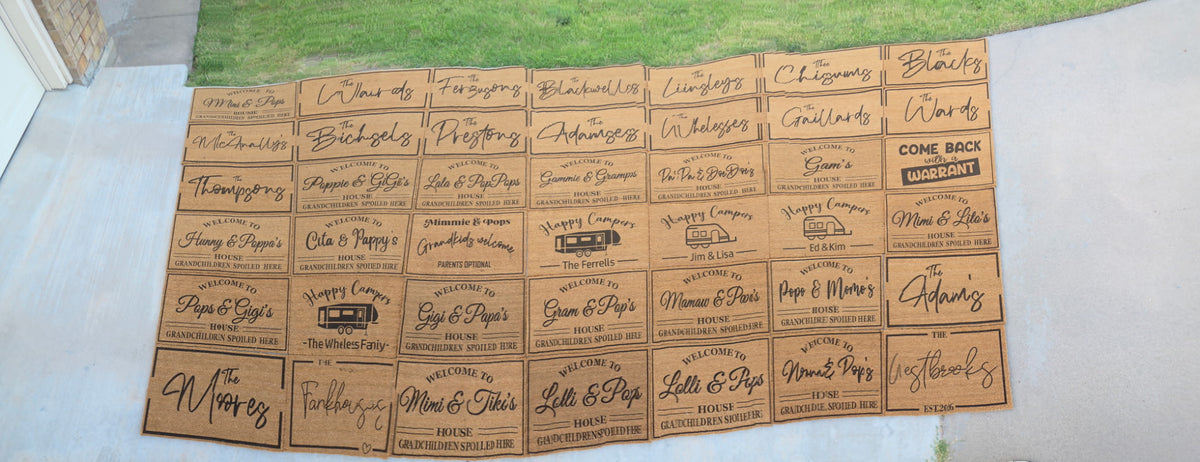 WELCOME TO
Mimi & Pops
HOUSE
GRANDCHILDREN SPOILED HERE
The
The
Fergusons
The
Blackwells
The
Liinsleys
The
Chisums
The
Blacks
The
The
Bichsels
The
Prestons
The
Adamses
The
Whelesses
The
Gaillards
The
Wards
The
Thompsons
WELCOME TO
Poppie & GiGi's
HOUSE
GRANDCHILDREN SPOILED HERE
WELCOME TO
Lala & PopPops
HOUSE
GRANDCHILDREN SPOILED HERE
WELCOME TO
Gammie & Gramps
HOUSE
GRANDCHILDREN SPOILED HERE
WELCOME TO
HOUSE
GRANDCHILDREN SPOILED HERE
WELCOME TO
Gam's
HOUSE
GRANDCHILDREN SPOILED HERE
COME BACK
with a
WARRANT
WELCOME TO
Hunny & Poppa's
HOUSE
GRANDCHILDREN SPOILED HERE
WELCOME TO
Cita & Pappy's
HOUSE
GRANDCHILDREN SPOILED HERE
Mimmie & Pops
Grandkids welcome
PARENTS OPTIONAL
Happy Campers
The Ferrells
Happy Campers
Jim & Lisa
Happy Campers
Ed & Kim
WELCOME TO
Mimi & Lila's
HOUSE
GRANDCHILDREN SPOILED HERE
WELCOME TO
Pops & Gigi's
HOUSE
GRANDCHILDREN SPOILED HERE
Happy Campers
-The Wheless Faniy-
WELCOME TO
Gigi & Papa's
HOUSE
GRANDCHILDREN SPOILED HERE
WELCOME TO
Gram & Pop's
HOUSE
GRANDCHILDREN SPOILED HERE
WELCOME TO
HOUSE
GRANDCHILDREN SPOILED HERE
WELCOME TO
Popo & Momo's
HOUSE
GRANDCHILDREN SPOILED HERE
The
Adam's
The
Moores
THE
WELCOME TO
Mimi & Tiki's
HOUSE
GRANDCHILDREN SPOILED HERE
WELCOME TO
Lolli & Pop
HOUSE
GRANDCHILDREN SPOILED HERE
WELCOME TO
Lolli & Pops
HOUSE
GRANDCHILDREN SPOILED HERE
WELCOME TO
HOUSE
GRANDCHILDREN SPOILED HERE
THE
Westbrooks